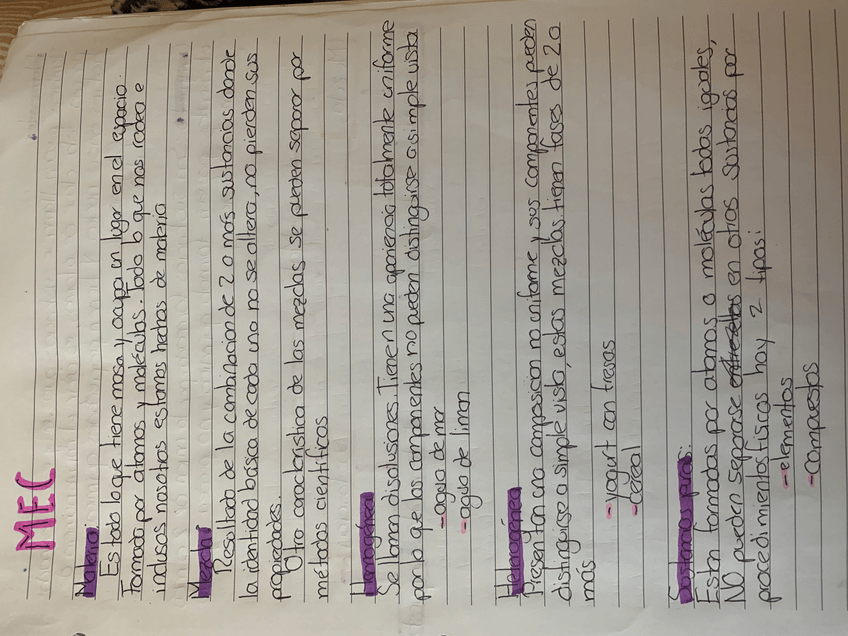 MEC
Materia:
Es todo lo que tiene masa y ocupa un lugar en el espacio.
Formado por atomos y moléculas. Todo lo que nos rodea e
inclusos nosotros estamos hechos de materia
Mezcla:
Resultado de la combinacion de 2 o más sustancias donde
la identidad basica de cada una no se altera, no pierden sus
propiedades.
Otra caracteristica de las mezclas, se pueden separar por
métodos cientificos
Homogénea
Se llaman disoluciones. Tienen una apariencia totalmente uniforme
por lo que los componentes no pueden distinguirse a simple vista
-agua de mar
-agua de limon
Heterogénea
Presentan una composicion no uniforme y sus componentes pueden
distinguirse a simple vista, estas mezclas tienen fases de 2 o
más
-yogurt con fresas
-cereal
Sustancias puras:
Estan formadas por atomos o moléculas todas iguales,
NO pueden separarse en otras sustancias por
procedimientos fisicos hay 2 tipos:
-elementos
-compuestos